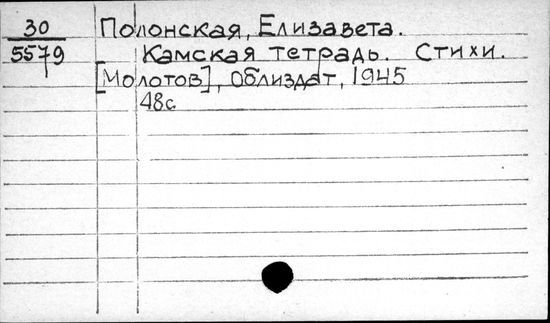 30 Полонская, Елизавета.
5579 Камская тетрадь. Стихи.
[Молотов], Облиздат, 1945
48с